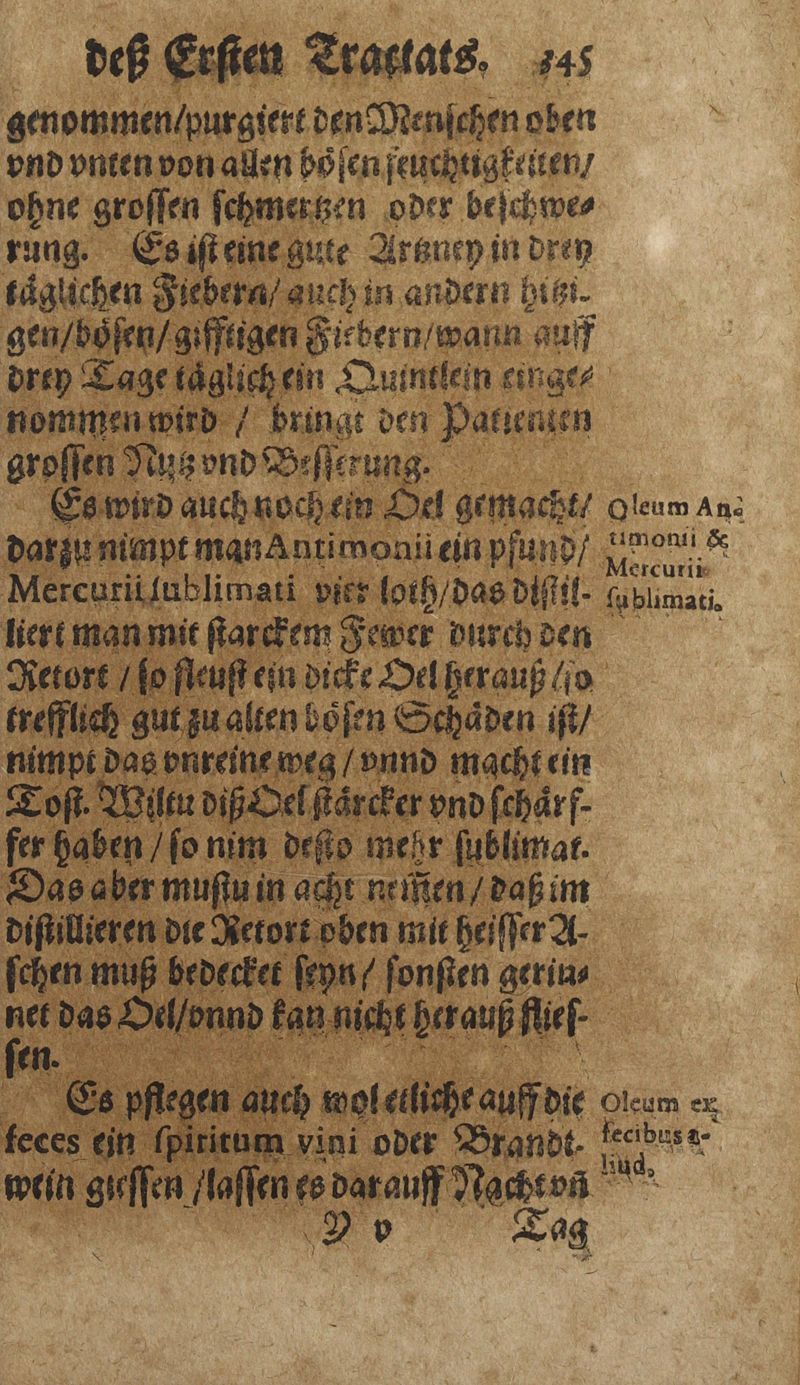 deß Ersten Tractats. 145
genommen/purgiert den Menschen oben
vnd vnten von allen bösen feuchtigkeiten/
ohne grossen schmertzen oder beschwe-
rung. Es ist eine gute Artzney in drey
täglichen Fiebern/ auch in andern hitzi-
gen/bösen/gifftigen Fiebern/wann auff
drey Tage täglich ein Quintlein einge-
nommen wird / bringt den Patienten
grossen Nutz vnd Besserung.
Es wird auch noch ein Oel gemacht/
darzu nimpt man Antimonii ein pfund/
Mercurii sublimati vier loth/das distil-
liert man mit starckem Fewer durch den
Retort / so fleust ein dicke Oel herauß / so
trefflich gut zu alten bösen Schäden ist/
nimpt das vnreine weg / vnnd macht ein
Tost. Wiltu diß Oel stärcker vnd schärf-
fer haben / so nim desto mehr sublimat.
Das aber mustu in acht nem̃en / daß im
distillieren die Retort oben mit heisser A-
schen muß bedecket seyn / sonsten gerin-
net das Oel/vnnd kan nicht herauß flies-
sen.
Es pflegen auch wol etliche auff die
feces ein spiritum vini oder Brandt-
wein giessen / lassen es darauff Nacht vñ
Y v Tag
Oleum An-
timonii &
Mercurii
sublimati.
Oleum ex
fecibus a-
liud.